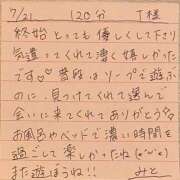 7/21 120分 T様
終始 とっても 優しくして下さり
気遣ってくれて凄く嬉しかった
です♡♡ 普段はソープで遊ぶ
のに、見つけてくれて選んで
会いに来てくれてありがとう
お風呂やベッドで濃い時間を
過ごして楽しかったね(*'ω'*)
また遊ぼうね!! みと